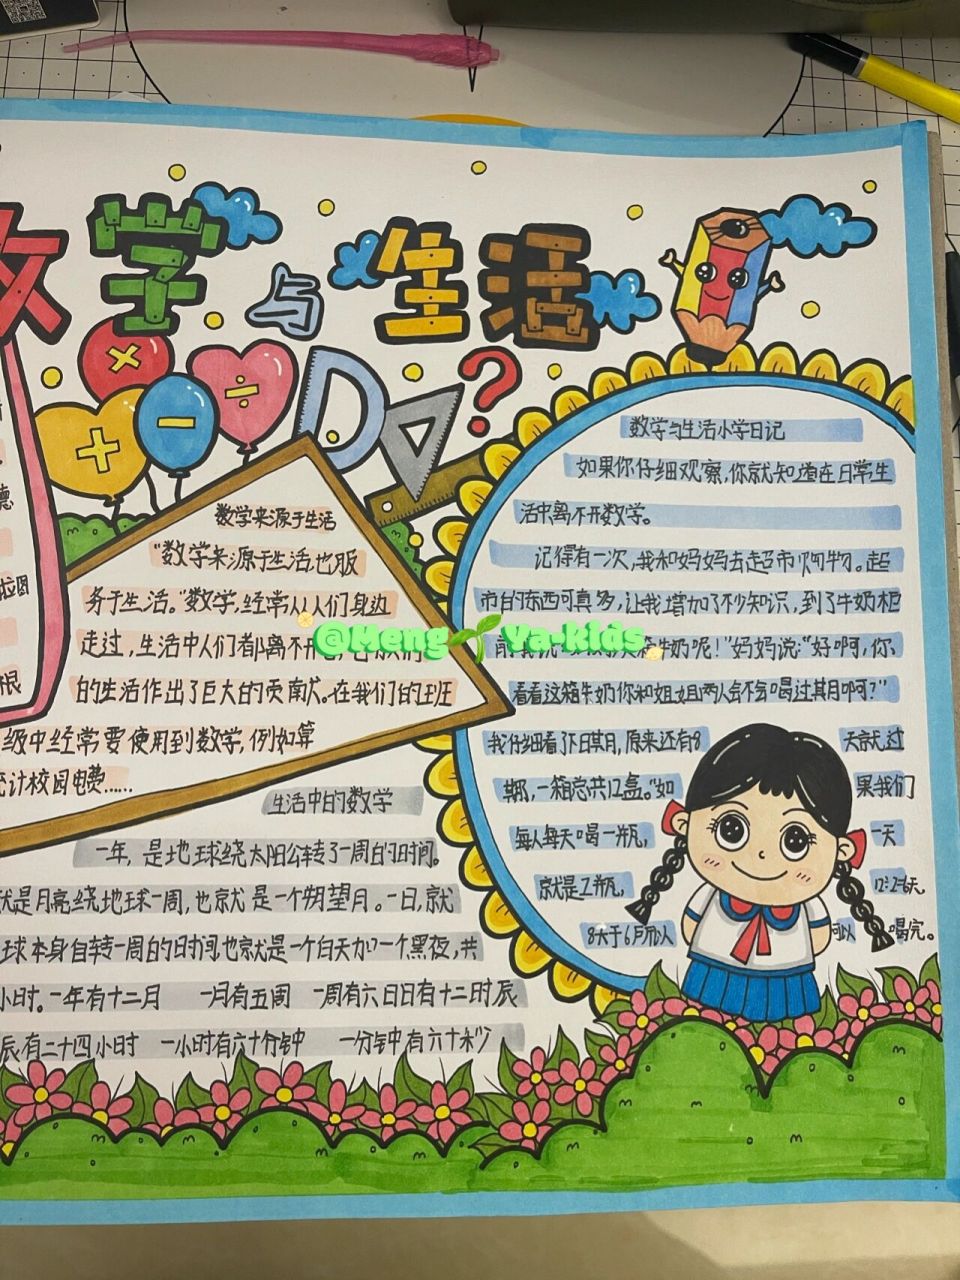 数学与生活
数学来源于生活
“数学来源于生活,也服
务于生活。”数学,经常从人们身边
走过,生活中人们都离不开
的生活作出了巨大的贡献。在我们的班
级中经常要使用到数学,例如算
计校园电费……
生活中的数学
一年,是地球绕太阳公转了一周的时间。
就是月亮绕地球一周,也就是一个朔望月。一日,就
球本身自转一周的时间,也就是一个白天加一个黑夜,共
小时。一年有十二月 一月有五周 一周有六日日有十二时辰
辰有二十四小时 一小时有六十分钟 一分钟有六十秒
数学与生活小学日记
如果你仔细观察,你就知道在日常生
活中离不开数学。
记得有一次,我和妈妈去超市购物。超
市的东西可真多,让我增加了不少知识,到了牛奶柜
前 牛奶呢!”妈妈说:“好啊,你
看看这箱牛奶你和姐姐两人会不会喝过其月啊?”
我仔细看了下日其月,原来还有8天就过
期,一箱总共12盒。“如果我们
每人每天喝一瓶,一天
就是2瓶,12÷2=6天。
8大于6所以可以喝完。
德
拉图
根
@Meng Ya-kids